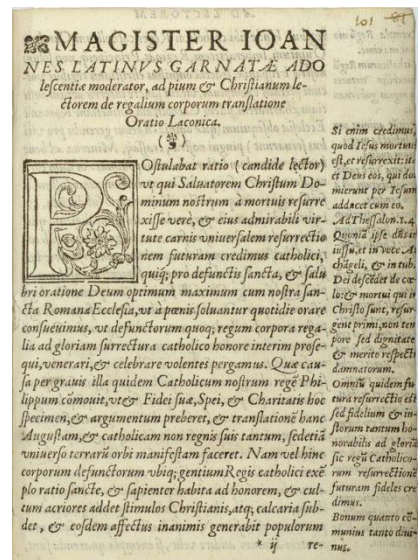 101 81
MAGISTER IOAN
NES LATINVS GARNATÆ ADO
leſcentiæ moderator, ad pium & Chriſtianum le-
ctorem de regalium corporum tranſlatione
Oratio Laconica.
POſtulabat ratio (candide lector)
vt qui Saluatorem Chriſtum Do-
minum noſtrum a mortuis reſurre
xiſſe verè, & eius admirabili vir-
tute carnis vniuerſalem reſurrectio
nem futuram credimus catholici,
quiq; pro defunctis ſancta, & ſalu
bri oratione Deum optimum maximum cum noſtra ſan-
cta Romana Eccleſia, vt a pœnis ſoluantur quotidie orare
conſueuimus, vt defunctorum quoq; regum corpora rega-
lia ad gloriam ſurrectura catholico honore interim proſe-
qui, venerari, & celebrare volentes pergamus. Quæ cau-
ſa per grauis illa quidem Catholicum noſtrum regē Phi-
lippum cōmouit, vt & Fidei ſuæ, Spei, & Charitatis hoc
ſpecimen, & argumentum preberet, & tranſlationē hanc
Auguſtam, & catholicam non regnis ſuis tantum, ſed etiā
vniuerſo terrarū orbi manifeſtam faceret. Nam vel hinc
corporum defunctorum vbiq; gentium Regis catholici exē
plo ratio ſanctè, & ſapienter habita ad honorem, & cul-
tum acriores addet ſtimulos Chriſtianis, atq; calcaria ſub-
det, & eoſdem affectus inanimis generabit populorum
* ij re-
Si enim credimus
quod Ieſus mortuus
eſt, et reſurrexit: ita
et Deus eos, qui dor
mierunt per Ieſum
adducet cum eo.
Ad Theſſalon. 1. 4
Quoniā ipſe dñs in
iuſſu, et in voce A
chāgeli, & in tub
Dei deſcēdet de cœ
lo: & mortui qui in
Chriſto ſunt, reſur-
gent primi, non tem
pore ſed dignitate
& merito reſpectu
damnatorum.
Omniū quidem fu
tura reſurrectio eſt
ſed fidelium & in-
ſtorum tantum ho-
norabilis ad gloriā
ſic regū Catholico-
rum reſurrectionē
futuram fideles cre
dimus.
Bonum quanto cō-
munius tanto diui-
nius.